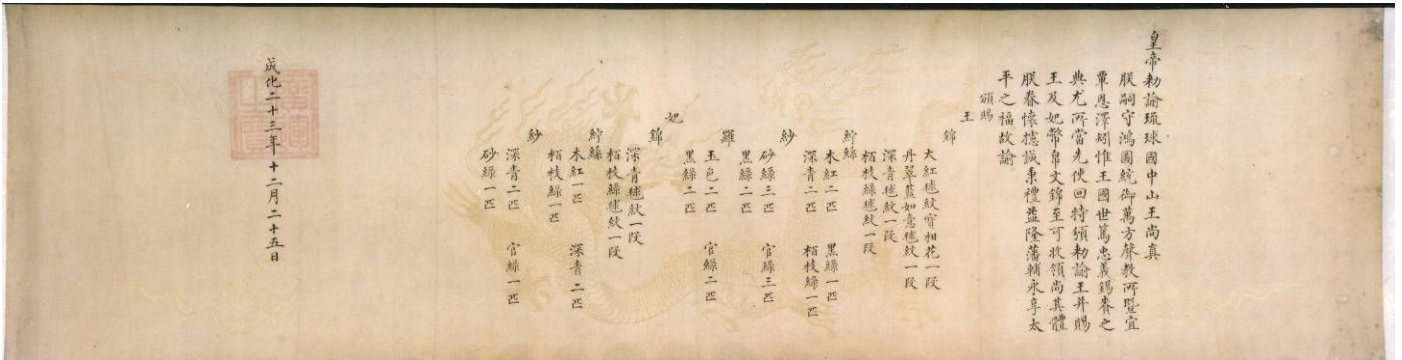 皇帝勑諭琉球國中山王尚真
朕嗣守鴻圖統御萬方聲教所暨宜
覃恩澤矧惟王國世篤忠義錫賚之
典尤所當先使回特頒勑諭王并賜
王及妃幣帛文錦至可收領尚其體
朕眷懷攄誠秉禮益隆藩輔永享太
平之福故諭
頒賜
王
錦
大紅毬紋寶相花一段
丹翠藍如意毬紋一段
深青毬紋一段
栢枝綠毬紋一段
紵絲
木紅二匹 黑綠一匹
深青二匹 栢枝綠一匹
紗
砂綠三匹 官綠三匹
黑綠二匹
羅
玉色二匹 官綠二匹
黑綠二匹
妃
錦
深青毬紋一段
栢枝綠毬紋一段
紵絲
木紅一匹 深青二匹
栢枝綠一匹
紗
深青二匹 官綠一匹
砂綠一匹
成化二十三年十二月二十五日